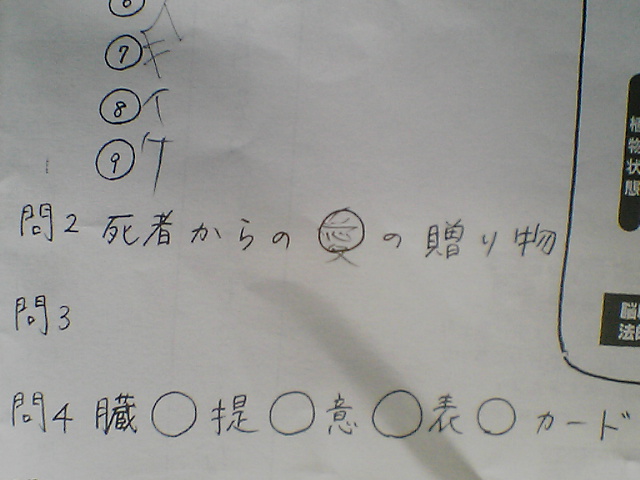 ⑥
⑦ キ
⑧ イ
⑨ ケ
問2 死者からの愛の贈り物
問3
問4 臓○提○意○表○カード
植物状態
脳
法